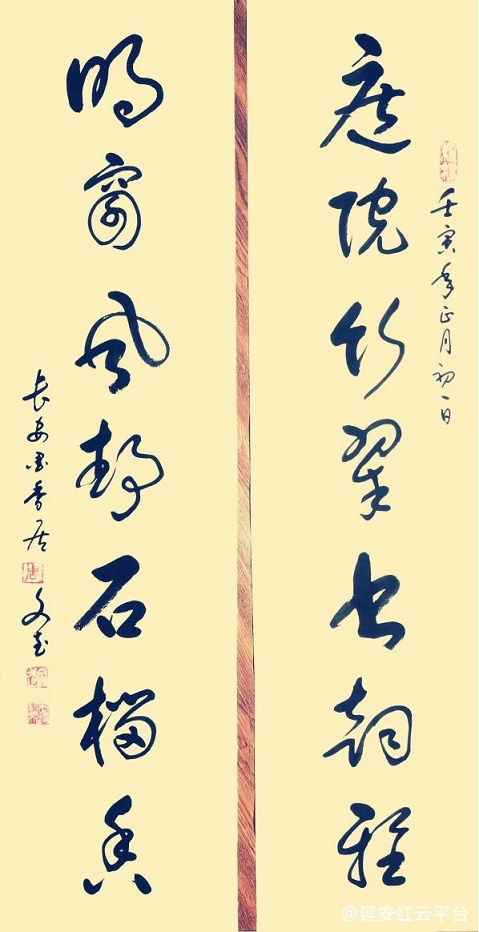 壬寅年正月初一日
庭院竹翠书韵雅
明窗风静石榴香
长安墨香居 文
@延安红云平台